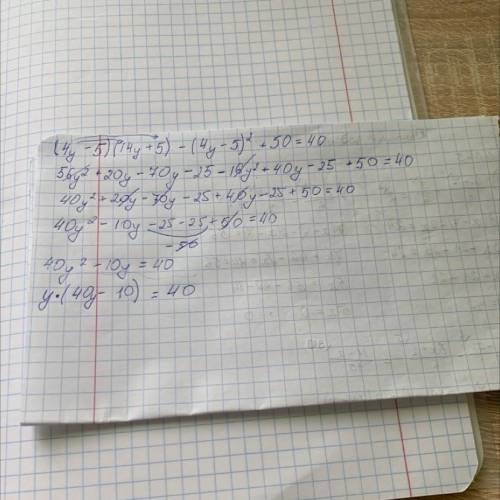 (4y - 5)(14y + 5) - (4y - 5)² + 50 = 40
56y² + 20y - 70y - 25 - 16y² + 40y - 25 + 50 = 40
40y² + 20y - 70y - 25 + 40y - 25 + 50 = 40
40y² - 10y - 25 - 25 + 50 = 40
- 50
40y² - 10y = 40
y·(40y - 10) = 40